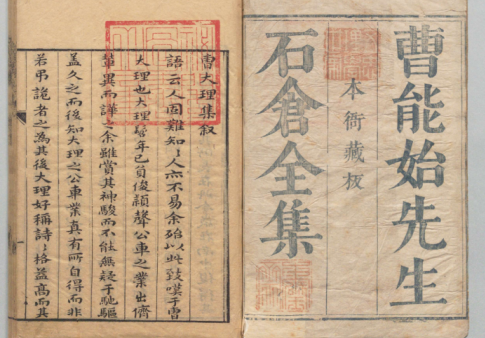 曹能始先生
本衙藏板
石倉全集
曹大理集叙
語云人固難知知人亦不易余殆以此致嘆于曹
大理也大理髫年已負俊穎聲公車之業出儕
輩異而譁之余雖賞其神駿而不能無疑于馳驅
蓋久之而後知大理之公車業真有所自得而非
若弔詭者之為其後大理好稱詩詩格益高而其